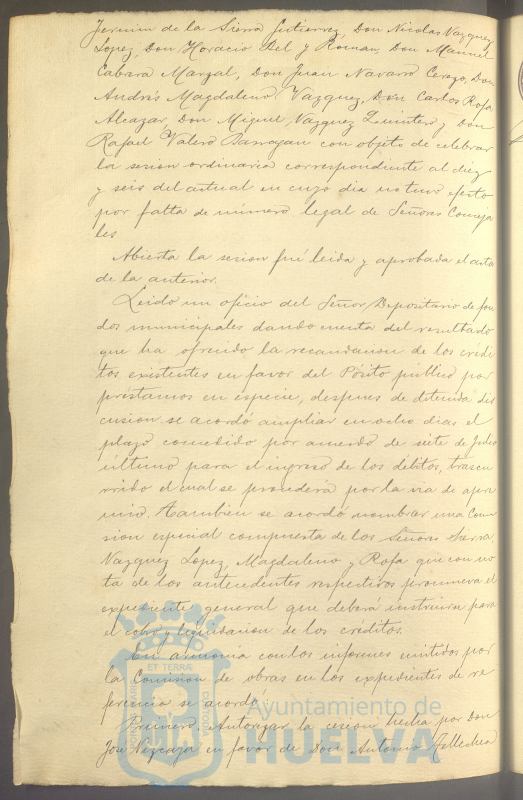 Jermin de la Sierra Gutierrez, Don Nicolas Vazquez
Lopez, Don Horacio Bel y Roman, Don Manuel
Cabara Marzal, Don Juan Navarro Cerezo, Don
Andrés Magdaleno Vazquez, Don Carlos Rofa
Alcazar, Don Miguel Vazquez Quintero y Don
Rafael Valero Barragan con objeto de celebrar
la sesion ordinaria correspondiente al diez
y seis del actual en cuyo dia no tuvo efecto
por falta de número legal de Señores Conceja
les
Abierta la sesion fué leida y aprobada el acta
de la anterior.
Leido un oficio del Señor Depositario de fon
dos municipales dando cuenta del resultado
que ha ofrecido la recaudacion de los crédi
tos existentes en favor del Pósito público por
préstamos en especie, despues de detenida dis
cusion se acordó ampliar en ocho dias el
plazo concedido por acuerdo de siete de Julio
último para el ingreso de los débitos, trascu
rrido el cual se procederá por la via de apre
mio. Tambien se acordó nombrar una Comi
sion especial compuesta de los Señores Sierra,
Vazquez Lopez, Magdaleno y Rofa que con no
ta de los antecedentes respectivos promueva el
expediente general que deberá instruirse para
el cobro y liquidacion de los créditos.
En armonía con los informes emitidos por
la Comision de obras en los expedientes de re
ferencia se acordó
Primero. Autorizar la cesion hecha por Don
José Vizcaya en favor de Don Antonio
ET TERRÆ
Ayuntamiento de
HUELVA